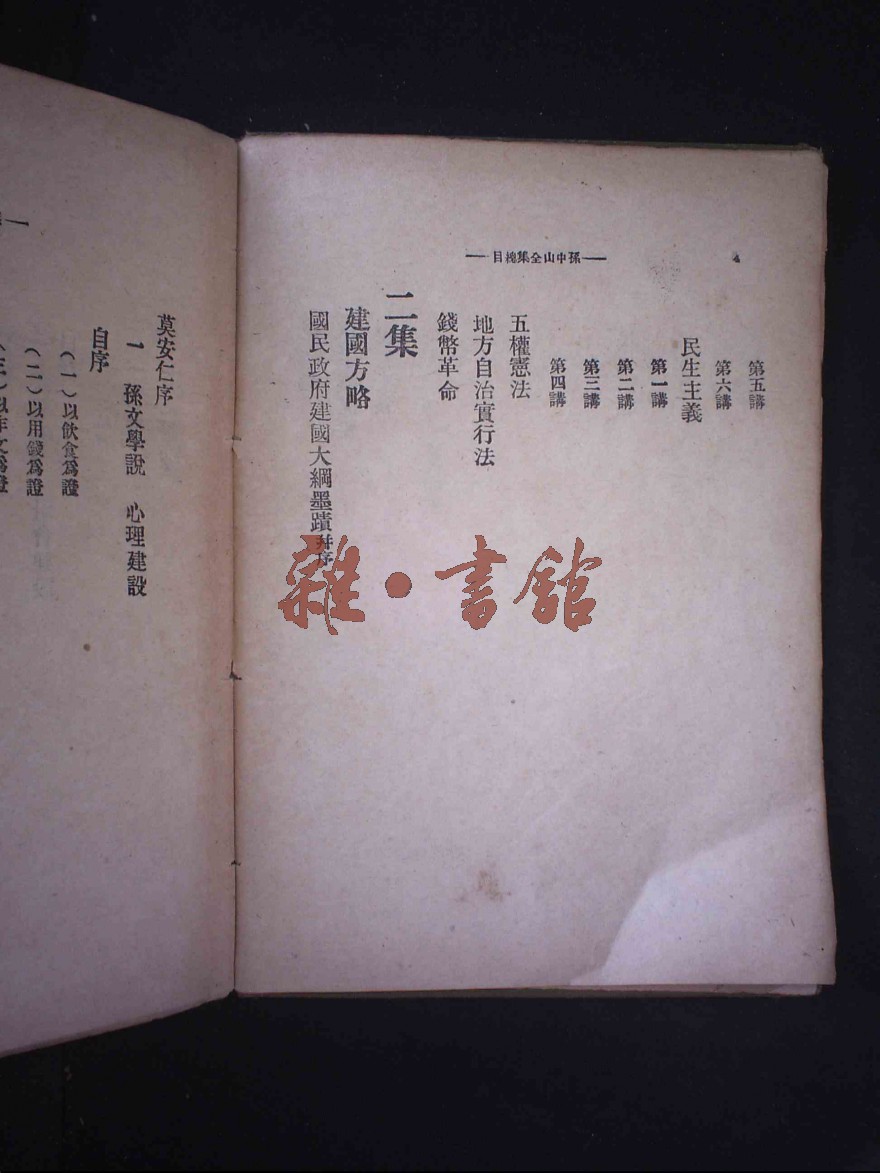 孫中山全集總目
第五講
第六講
民生主義
第一講
第二講
第三講
第四講
五權憲法
地方自治實行法
錢幣革命
二集
建國方略
國民政府建國大綱墨蹟并序
莫安仁序
一 孫文學說 心理建設
自序
（一）以飲食爲證
（二）以用錢爲證
（三）以作文爲證
雜·書館